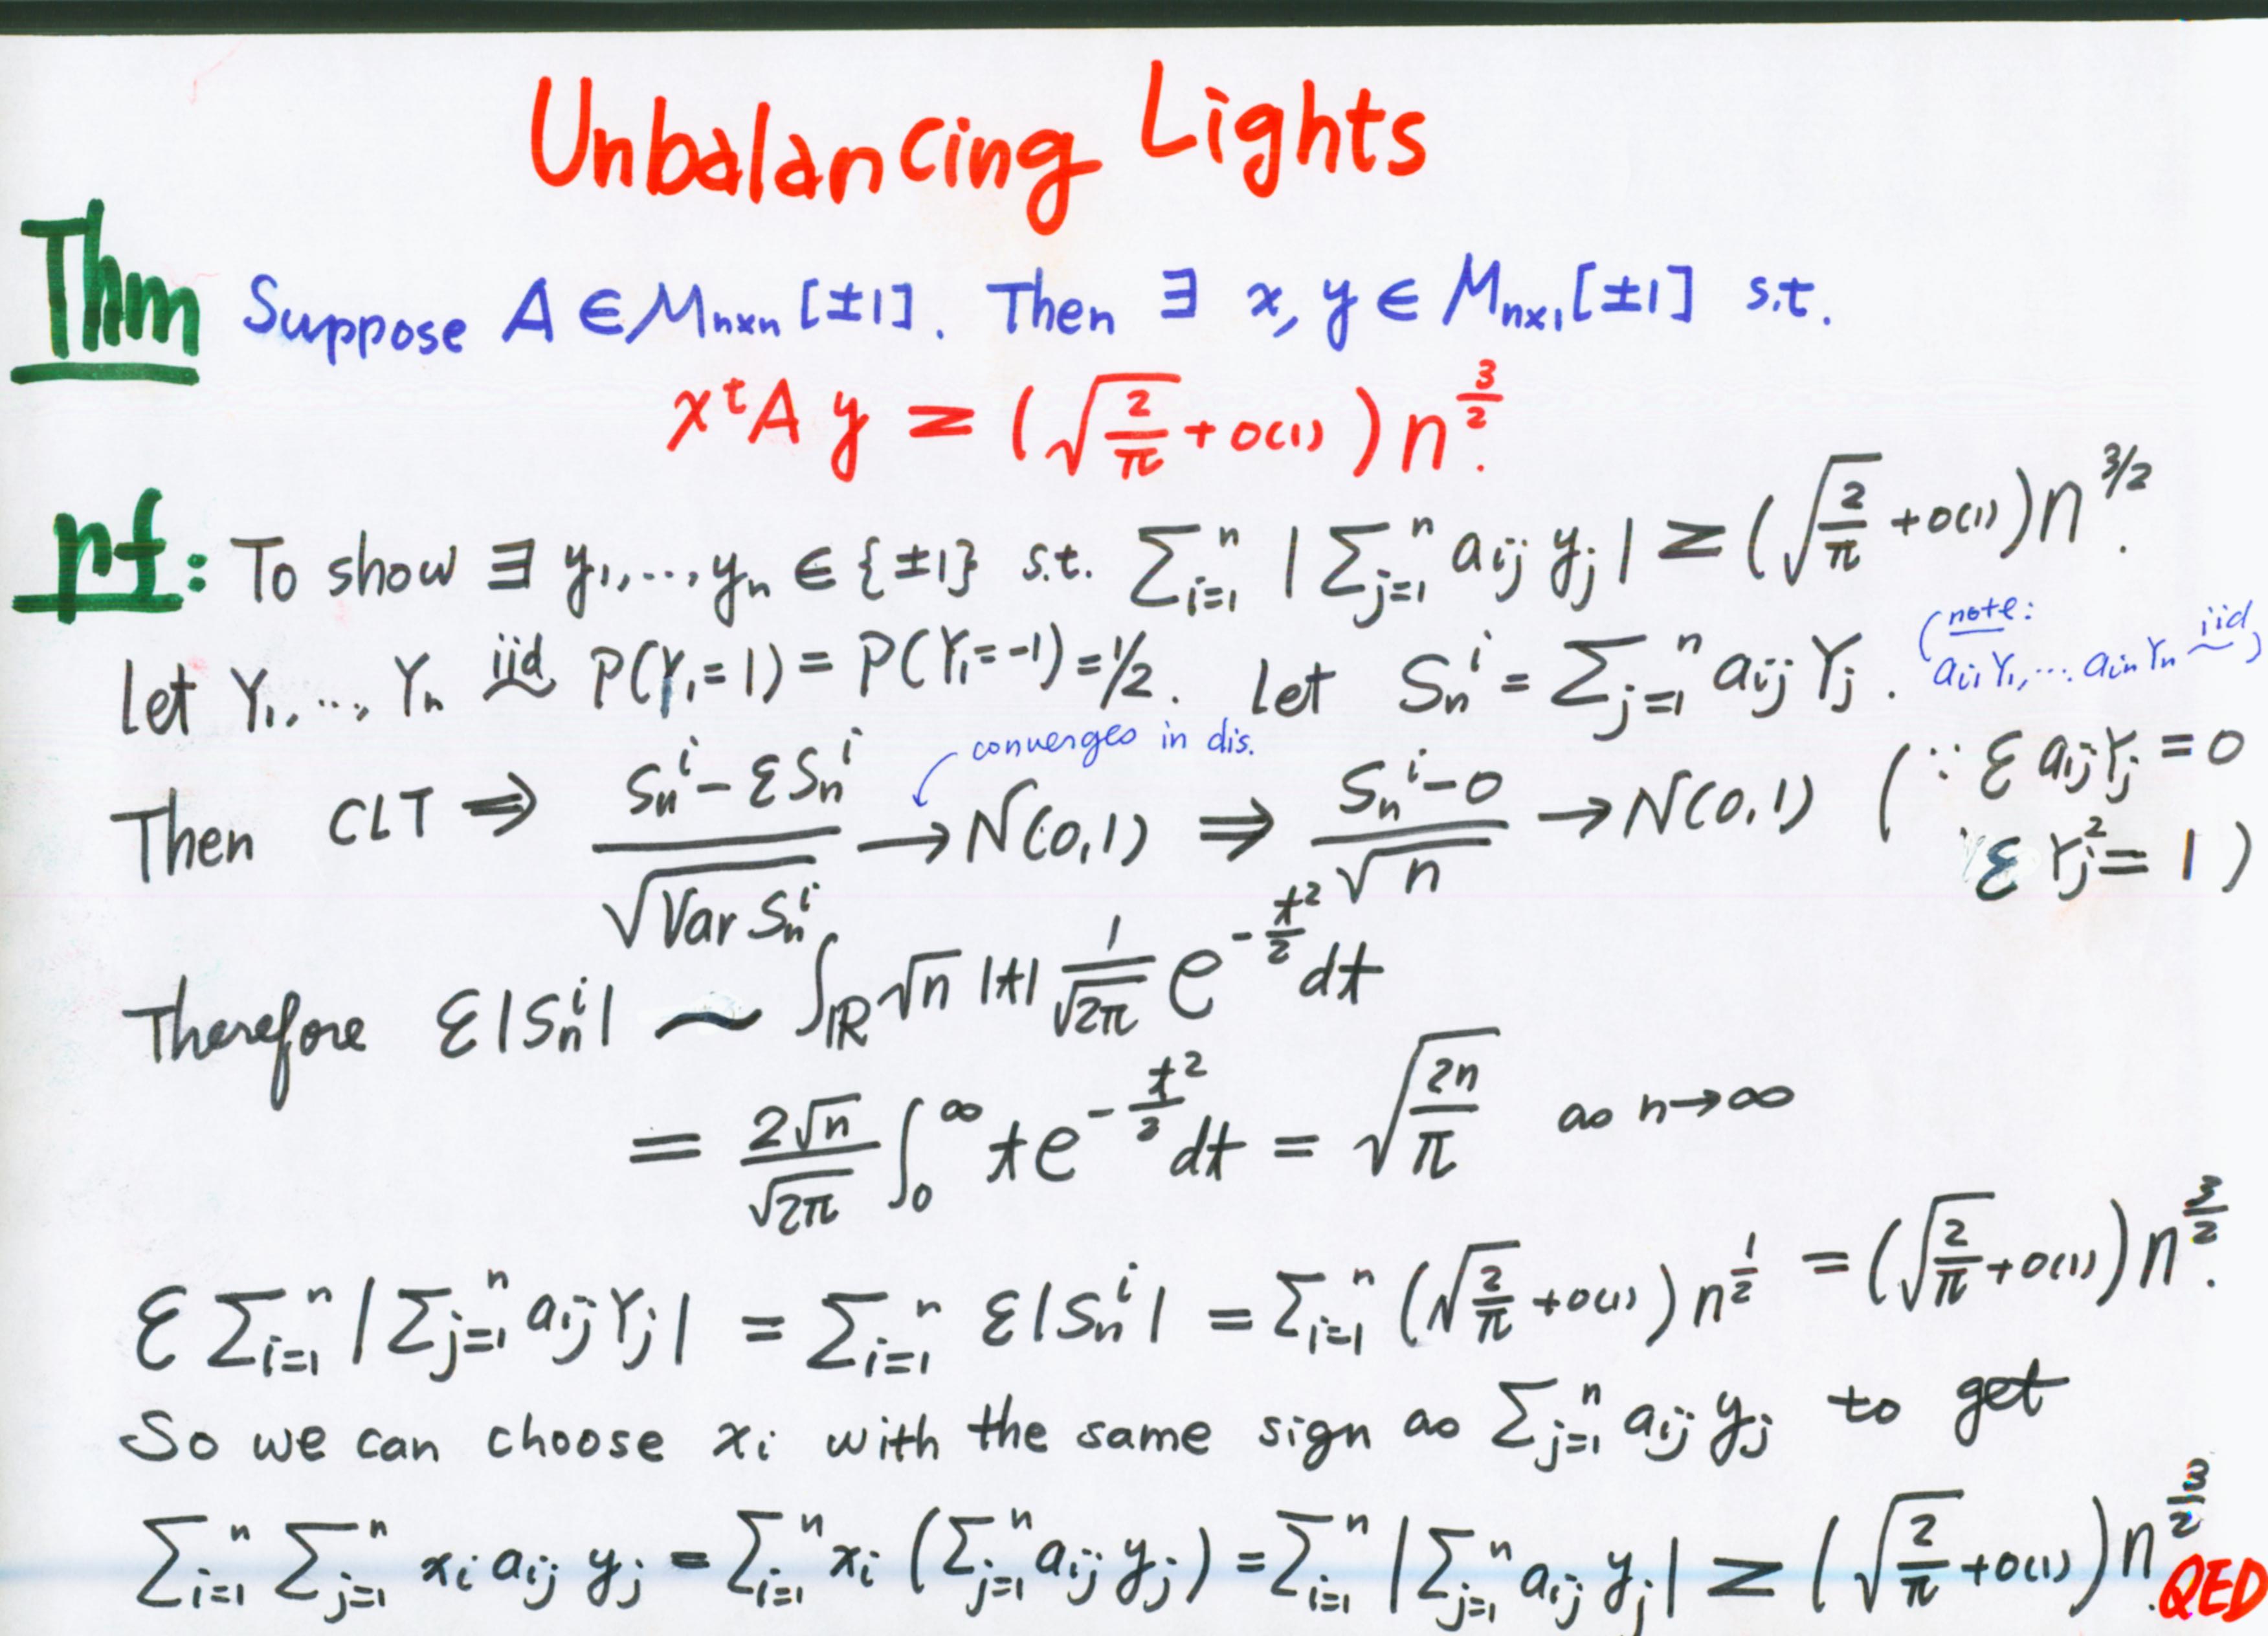 Unbalancing Lights
Thm Suppose A ∈ M_{n×n}[±1]. Then ∃ x, y ∈ M_{n×1}[±1] s.t.
x^t A y ≥ (√(2/π) + o(1)) n^{3/2}.
pf: To show ∃ y_1, ..., y_n ∈ {±1} s.t. Σ_{i=1}^n |Σ_{j=1}^n a_{ij} y_j| ≥ (√(2/π) + o(1)) n^{3/2}.
Let Y_1, ..., Y_n iid P(Y_1=1) = P(Y_1=-1) = 1/2. Let S_n^i = Σ_{j=1}^n a_{ij} Y_j. (note: a_{i1}Y_1, ... a_{in}Y_n iid)
converges in dis.
Then CLT ⇒ (S_n^i - ℰS_n^i)/√(Var S_n^i) → N(0,1) ⇒ (S_n^i - 0)/√n → N(0,1) (∵ ℰ a_{ij}Y_j = 0
ℰ Y_j^2 = 1)
Therefore ℰ|S_n^i| ~ ∫_ℝ √n |t| 1/√(2π) e^{-t^2/2} dt
= 2√n/√(2π) ∫_0^∞ t e^{-t^2/2} dt = √(2n/π) as n→∞
ℰ Σ_{i=1}^n |Σ_{j=1}^n a_{ij} Y_j| = Σ_{i=1}^n ℰ|S_n^i| = Σ_{i=1}^n (√(2/π) + o(1)) n^{1/2} = (√(2/π) + o(1)) n^{3/2}.
So we can choose x_i with the same sign as Σ_{j=1}^n a_{ij} y_j to get
Σ_{i=1}^n Σ_{j=1}^n x_i a_{ij} y_j = Σ_{i=1}^n x_i (Σ_{j=1}^n a_{ij} y_j) = Σ_{i=1}^n |Σ_{j=1}^n a_{ij} y_j| ≥ (√(2/π) + o(1)) n^{3/2}. QED